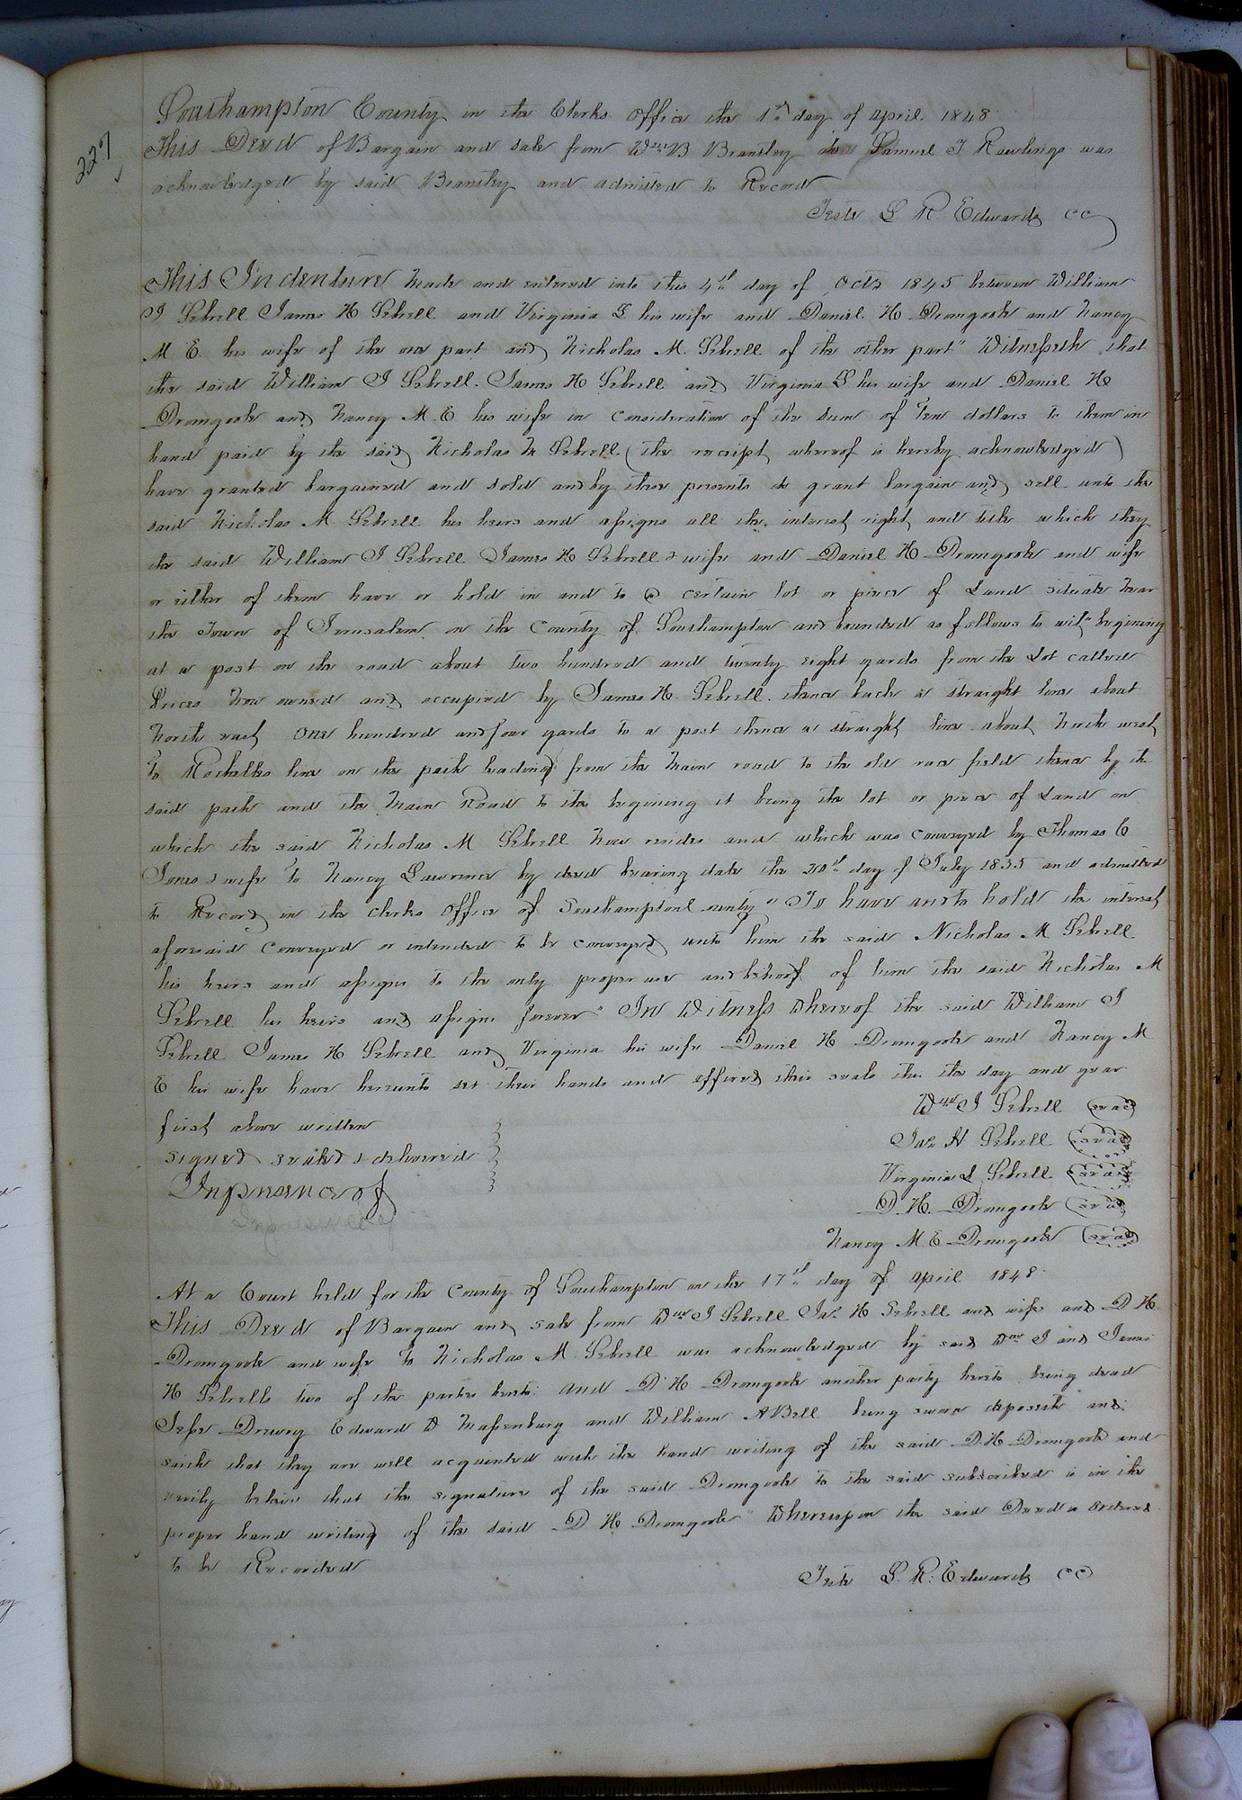 227
Southampton County in the Clerks Office the 1st day of April 1848
This Deed of Bargain and sale from Wm B Brantley to Samuel T Rawlings was
acknowledged by said Brantley and admitted to Record
Teste L R Edwards CC
This Indenture made and entered into this 4th day of Octo 1845 between William
J Sebrell James H Sebrell and Virginia L his wife and Daniel H Dromgoole and Nancy
M E his wife of the one part and Nicholas M Sebrell of the other part" Witnesseth that
the said William J Sebrell James H Sebrell and Virginia L his wife and Daniel H
Dromgoole and Nancy M E his wife in consideration of the sum of Ten dollars to them in
hand paid by the said Nicholas M Sebrell (the receipt whereof is hereby acknowledged)
have granted bargained and sold and by these presents do grant bargain and sell unto the
said Nicholas M Sebrell his heirs and assigns all the interest right and title which they
the said William J Sebrell James H Sebrell & wife and Daniel H Dromgoole and wife
or either of them have or hold in and to a certain lot or piece of Land situate near
the Town of Jerusalem in the County of Southampton and bounded as follows to wit" begining
at a post on the road about two hundred and twenty eight yards from the Lot called
now owned and occupied by James H Sebrell thence back a straight line about
North east one hundred and four yards to a post thence a straight line about North west
to line on the path leading from the main road to the old race field thence by the
said path and the main Road to the begining it being the lot or piece of Land on
which the said Nicholas M Sebrell now resides and which was conveyed by Thomas C
Jones & wife To Nancy Lawrence by deed bearing date the 20th day of July 1835 and admitted
to Record in the clerks Office of Southampton County" To have and to hold the interest
aforesaid conveyed or intended to be conveyed unto him the said Nicholas M Sebrell
his heirs and assigns to the only proper use and behoof of him the said Nicholas M
Sebrell his heirs and assigns forever" In Witness whereof the said William J
Sebrell James H Sebrell and Virginia his wife Daniel H Dromgoole and Nancy M
E his wife have hereunto set their hands and affixed their seals this the day and year
first above written
Wm J Sebrell (seal)
signed sealed & delivered
Jas H Sebrell (seal)
In presence of
Virginia L Sebrell (seal)
D. H. Dromgoole (seal)
Nancy M E Dromgoole (seal)
At a Court held for the County of Southampton on the 17th day of April 1848
This Deed of Bargain and sale from Wm J Sebrell Jas H Sebrell and wife and D H
Dromgoole and wife To Nicholas M Sebrell was acknowledged by said Wm J and James
H Sebrells two of the parties hereto and D H Dromgoole another party hereto being dead
Jesse Drewry Edward D Massenburg and William A Bell being sworn deposeth and
saith that they are well acquainted with the hand writing of the said D. H Dromgoole and
verily believe that the signature of the said Dromgoole to the said subscribed is in the
proper hand writing of the said D H Dromgoole" Whereupon the said Deed is ordered
to be Recorded
Teste L. R. Edwards CC